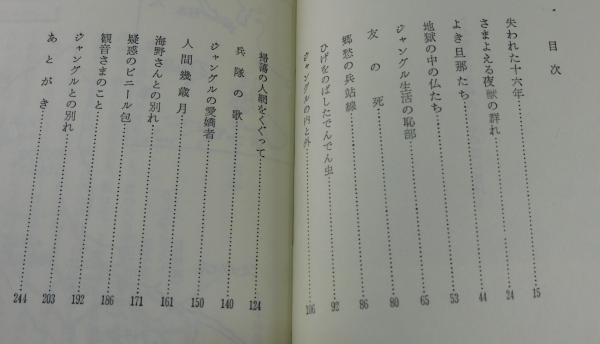 目次
失われた十六年……15
さまよえる夜獣の群れ……24
よき旦那たち……44
地獄の中の仏たち……53
ジャングル生活の恥部……65
友の死……80
郷愁の兵站線……86
ひげをのばしたでんでん虫……92
ジャングルの内と外……106
掃蕩の人網をくぐって……124
兵隊の歌……140
ジャングルの愛嬌者……150
人間幾歳月……161
海野さんとの別れ……171
疑惑のビニール包……186
観音さまのこと……192
ジャングルとの別れ……203
あとがき……244